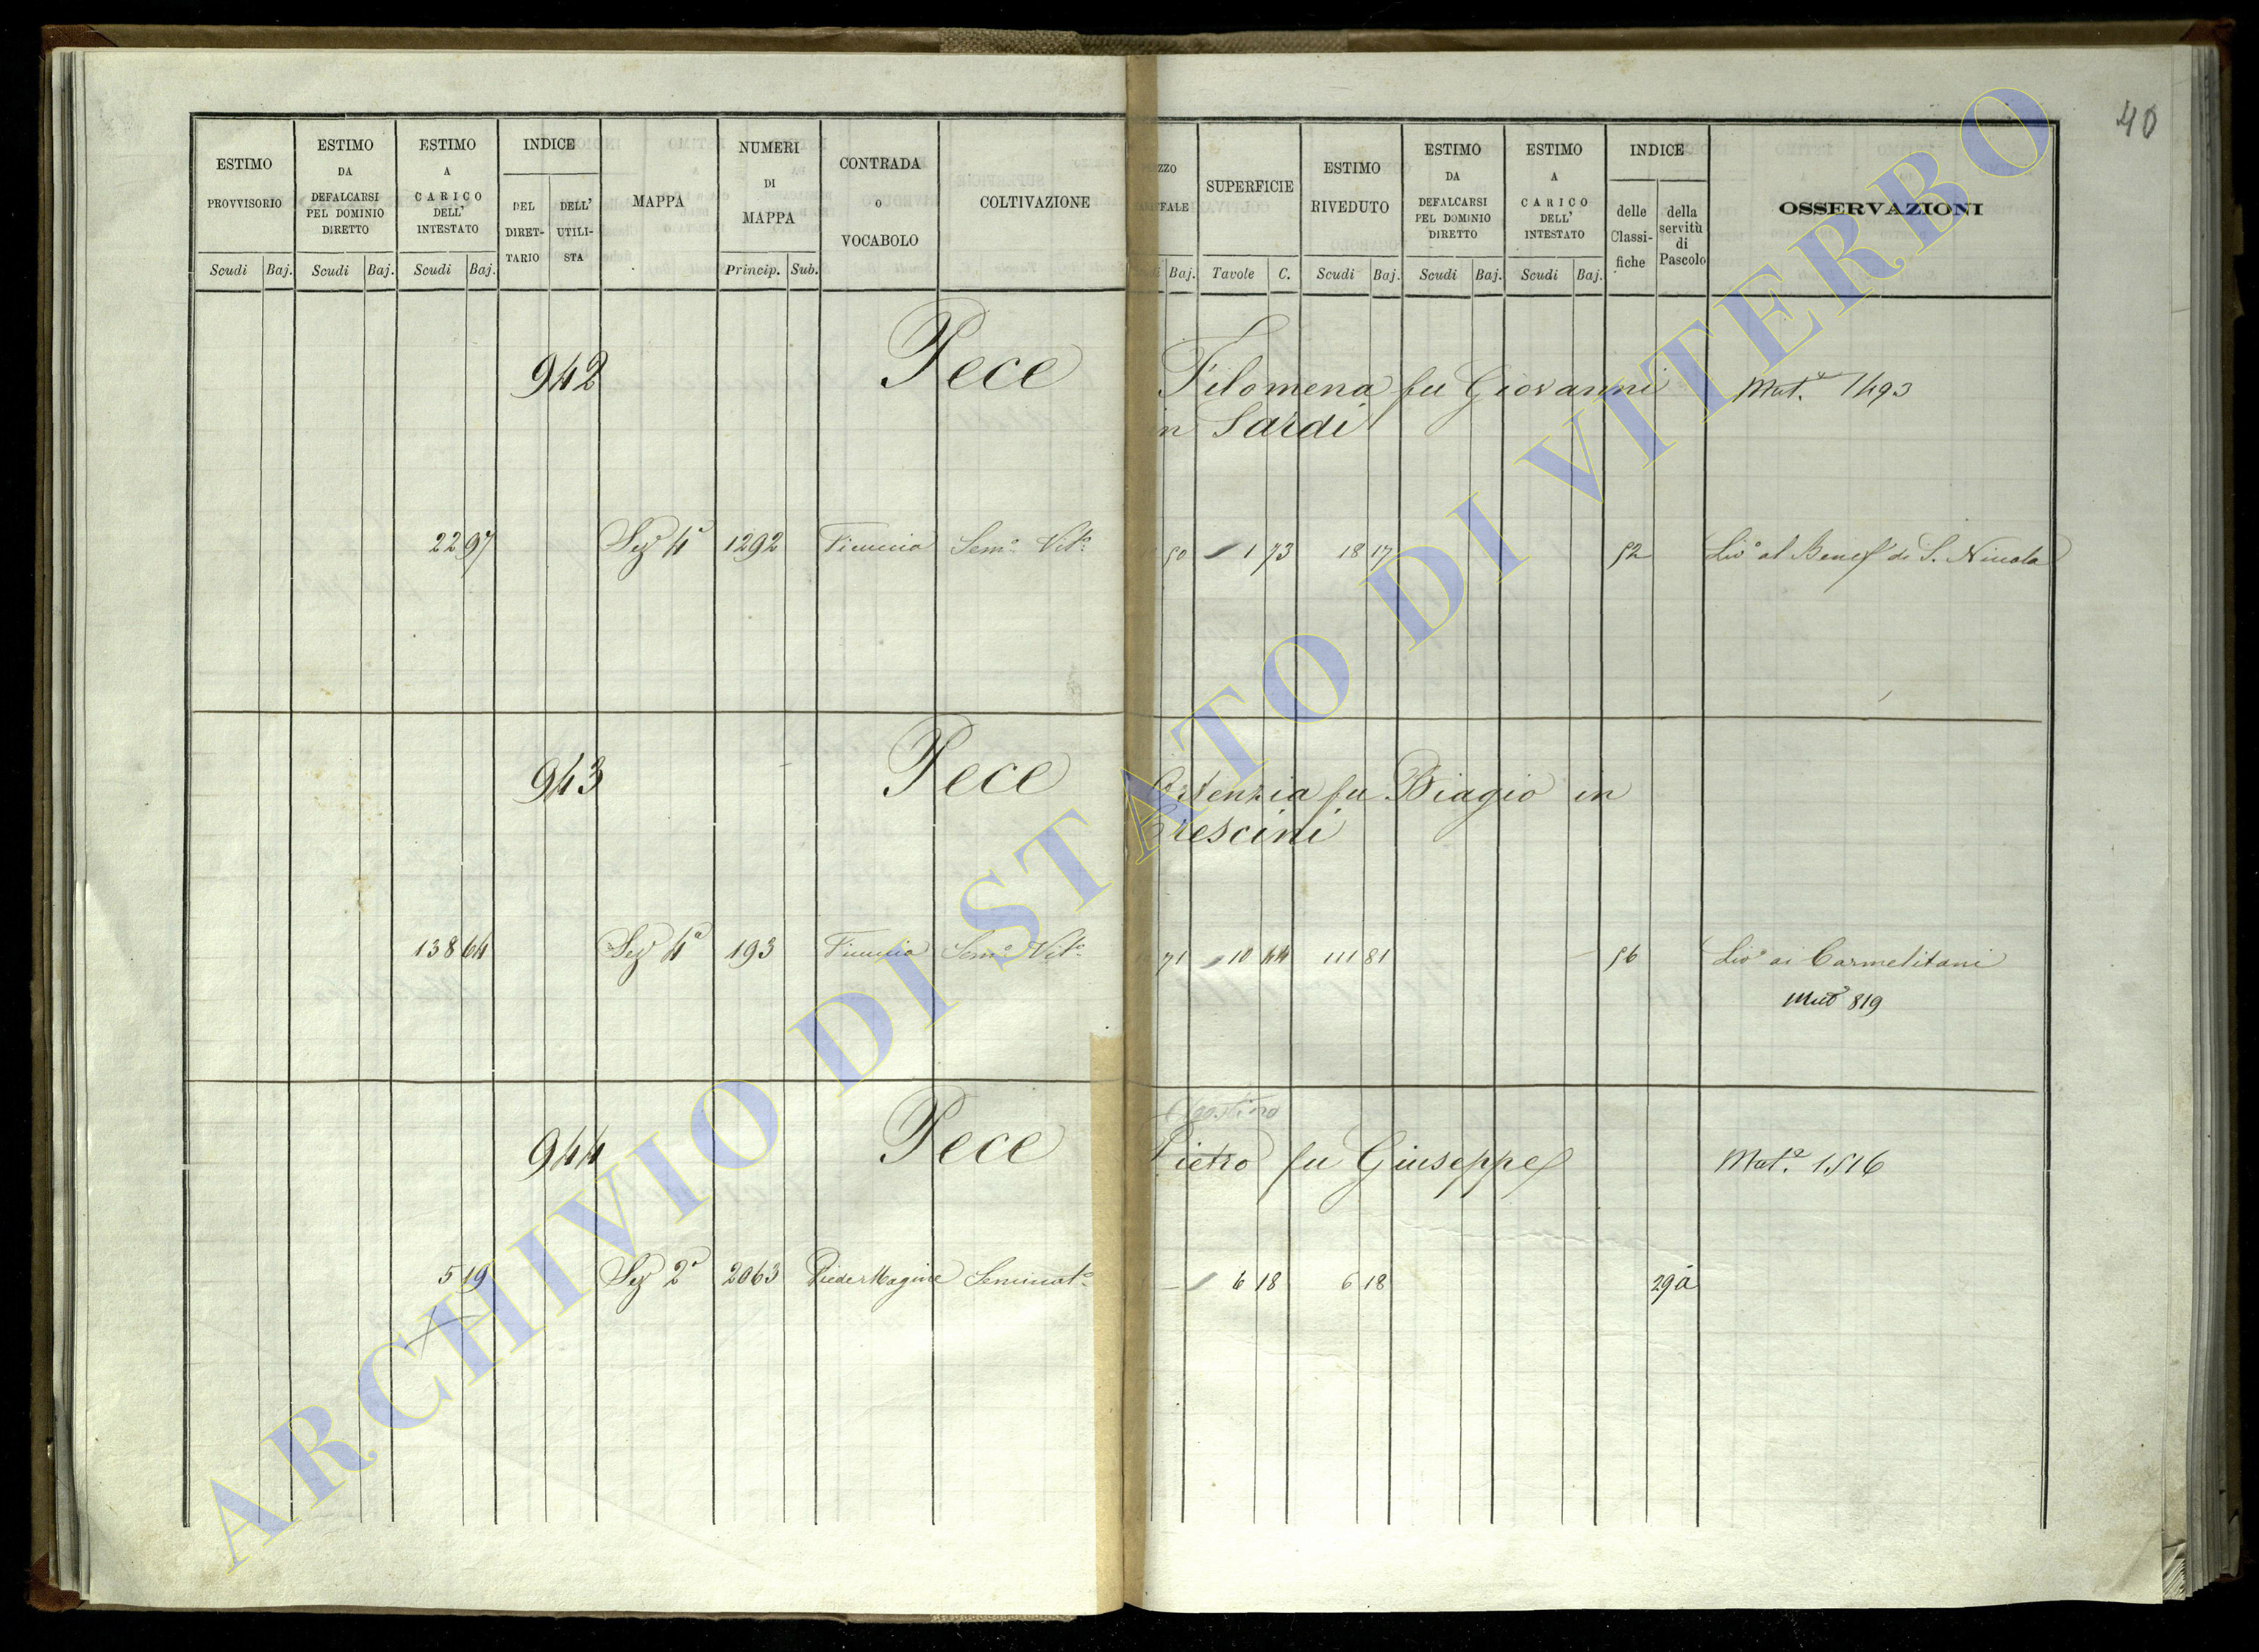 40
ESTIMO PROVVISORIO
Scudi Baj.
ESTIMO DA DEFALCARSI PEL DOMINIO DIRETTO
Scudi Baj.
ESTIMO A CARICO DELL' INTESTATO
Scudi Baj.
INDICE
DEL DIRET-TARIO
DELL' UTILI-STA
MAPPA
NUMERI DI MAPPA
Princip. Sub.
CONTRADA O VOCABOLO
COLTIVAZIONE
Baj.
SUPERFICIE
Tavole C.
ESTIMO RIVEDUTO
Scudi Baj.
ESTIMO DA DEFALCARSI PEL DOMINIO DIRETTO
Scudi Baj.
ESTIMO A CARICO DELL' INTESTATO
Scudi Baj.
INDICE
delle Classi-fiche
della servitù di Pascolo
OSSERVAZIONI
942 Pece Filomena fu Giovanni Mat.e 1493
in Sardi
22 97 Sez 4a 1292 Ficuccia Sem.o Vit.o 50 1 73 18 17 52 Liv.o al Benef.o di S. Nicola
943 Pece Ortenzia fu Biagio in
Crescini
138 64 Sez 4a 193 Ficuccia Sem.o Vit.o 71 10 44 111 81 56 Liv.o ai Carmelitani
819
Agostino
944 Pece Pietro fu Giuseppe Mat.e 1516
5 19 Sez 2a 2063 Seminat.o 6 18 6 18 29a
ARCHIVIO DI STATO DI VITERBO